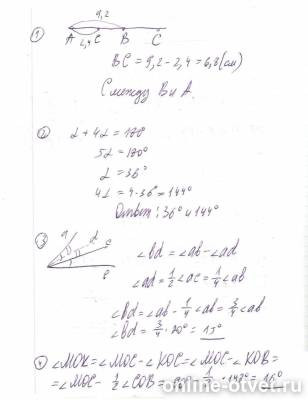 9,2
1 A C B C
2,4
BC = 9,2 - 2,4 = 6,8 (см)
C между B и A.
2 α + 4α = 180°
5α = 180°
α = 36°
4α = 4·36 = 144°
Ответ: 36° и 144°
3 a d c
b
∠bd = ∠ab - ∠ad
∠ad = 1/2 ∠ac = 1/4 ∠ab
∠bd = ∠ab - 1/4 ∠ab = 3/4 ∠ab
∠bd = 3/4 · 20° = 15°
4 ∠MOK = ∠MOC - ∠KOC = ∠MOC - ∠KOB =
= ∠MOC - 1/2 ∠COB =
online-otvet.ru